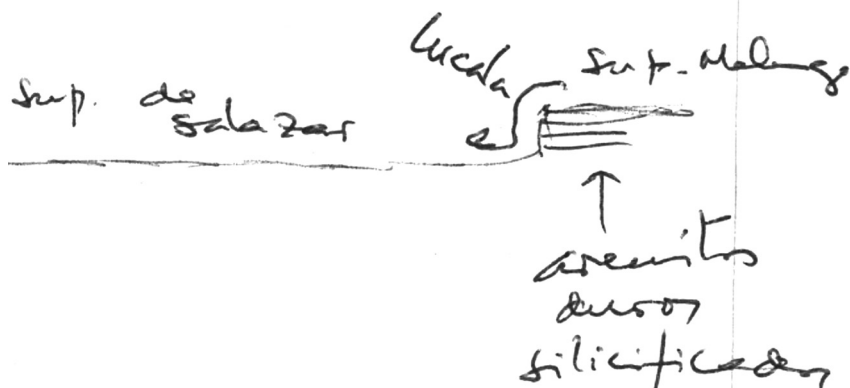 Sup. de
Salazar
Lucala
Sup. Malange
arenitos
duros
silicificados